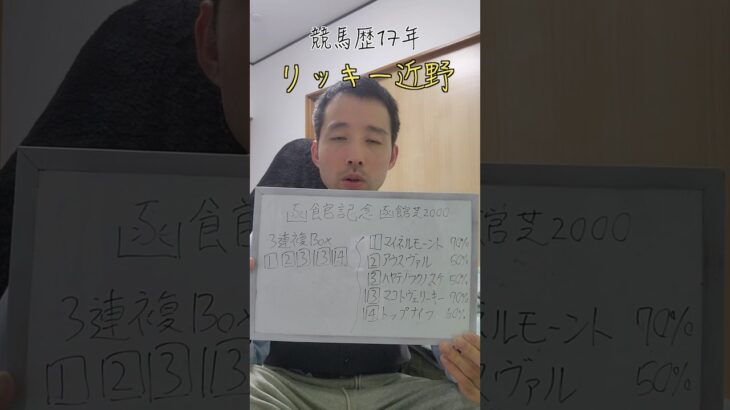 競馬歴17年
リッキー近野
函館記念 函館芝2000
3連複Box
1 2 3 13 14
1 マイネルモーント 70%
2 アウスヴァル 50%
3 ハヤテノフクノスケ 50%
13 マコトヴェリーキー 70%
14 トップナイフ 50%